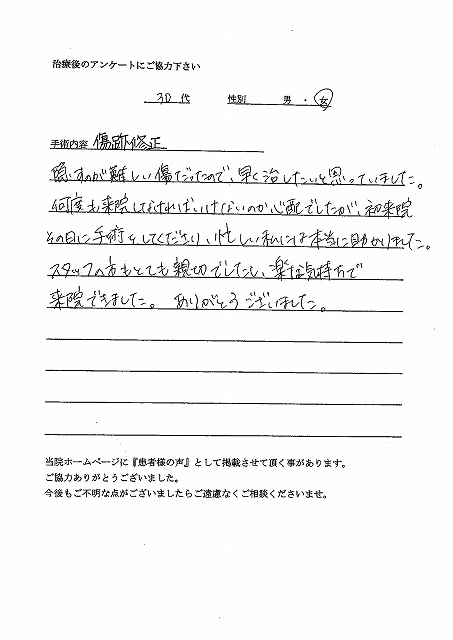 治療後のアンケートにご協力下さい
30 代 性別 男 ・ 女
手術内容 傷跡修正
隠すのが難しい傷だったので、早く治したいと思っていました。
何度も来院しなければいけないのか心配でしたが、初来院
その日に手術をしてくださり、忙しい私には本当に助かりました。
スタッフの方もとても親切でしたし、楽な気持ちで
来院できました。 ありがとうございました。
当院ホームページに『患者様の声』として掲載させて頂く事があります。
ご協力ありがとうございました。
今後もご不明な点がございましたらご遠慮なくご相談くださいませ。